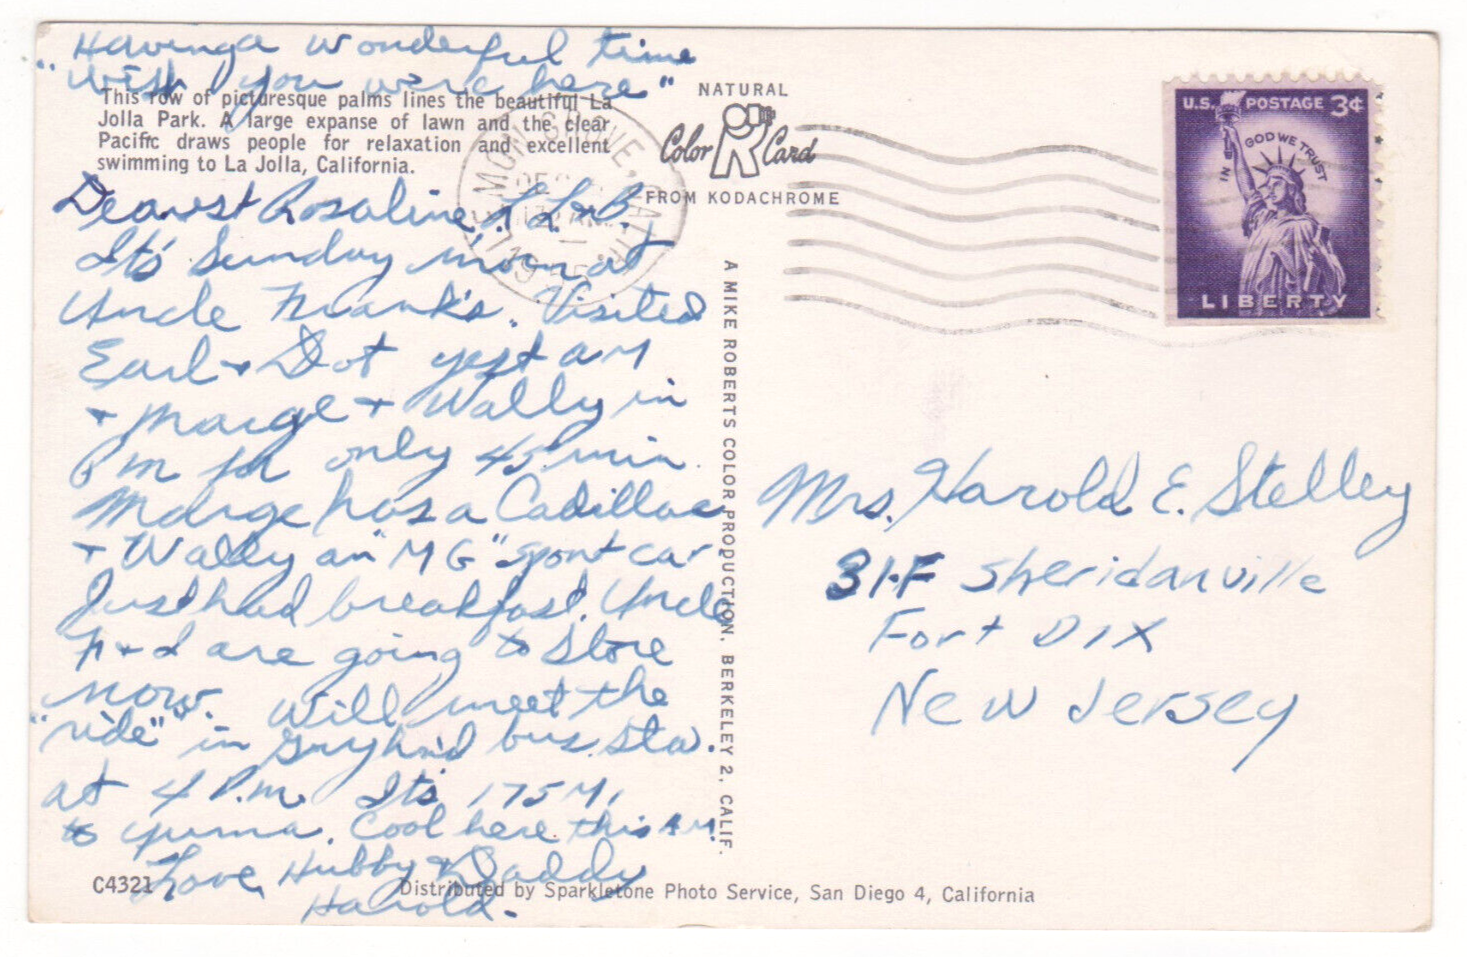 Having a wonderful time
"Wish you were here"
This row of picturesque palms lines the beautiful La
Jolla Park. A large expanse of lawn and the clear
Pacific draws people for relaxation and excellent
swimming to La Jolla, California.
Dearest Rosaline
It's Sunday morn at
Uncle Frank's. Visited
Earl + Dot yest AM
+ Marge + Wally in
PM for only 45 min.
Marge has a Cadillac
+ Wally an "MG" sport car.
Just had breakfast. Uncle
F + I are going to store
now. Will meet the
"ride" in Greyh'nd bus. sta.
at 4 P.M. It's 175 Mi
to Yuma. Cool here this A.M.
Love, Hubby & Daddy
Harold.
C4321
Distributed by Sparkletone Photo Service, San Diego 4, California
A MIKE ROBERTS COLOR PRODUCTION, BERKELEY 2, CALIF.
NATURAL
Color R Card
FROM KODACHROME
LEMON GROVE, CALIF.
DEC
U.S. POSTAGE 3¢
IN GOD WE TRUST
LIBERTY
Mrs. Harold E. Stelley
31-F Sheridanville
Fort DIX
New Jersey